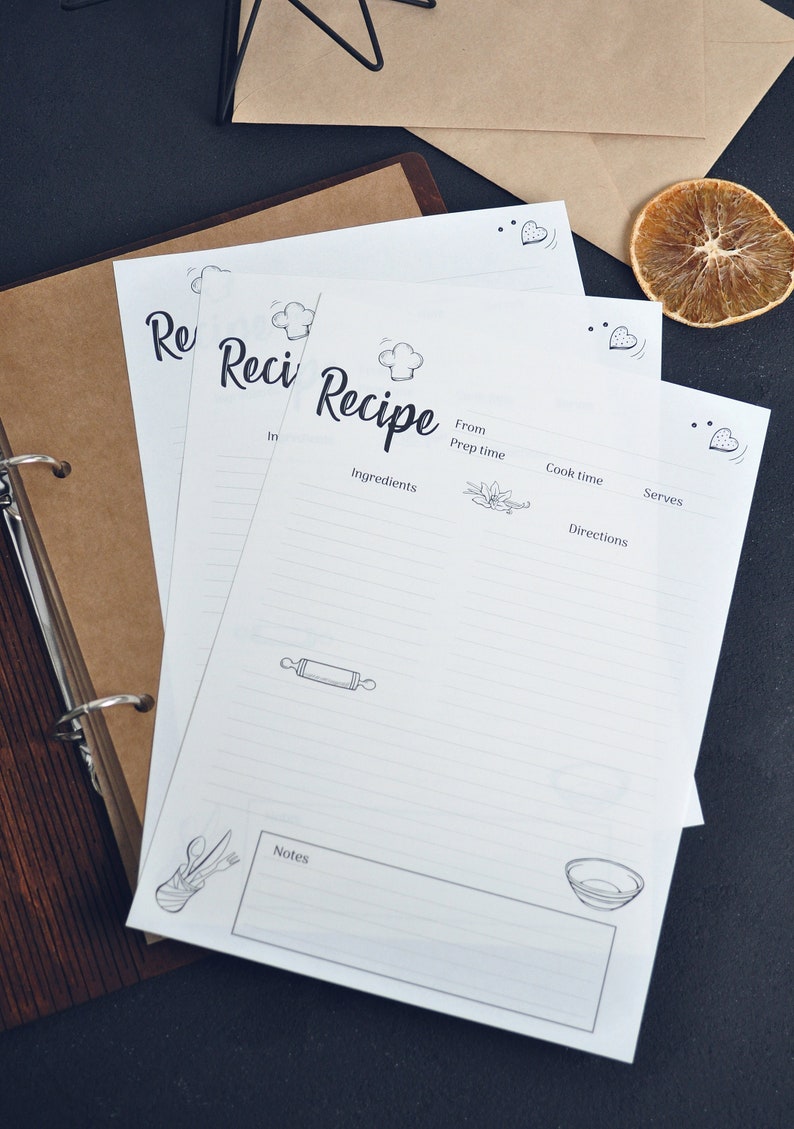 Re
Reci
In
Recipe
From
Prep time
Cook time
Serves
Ingredients
Directions
Notes